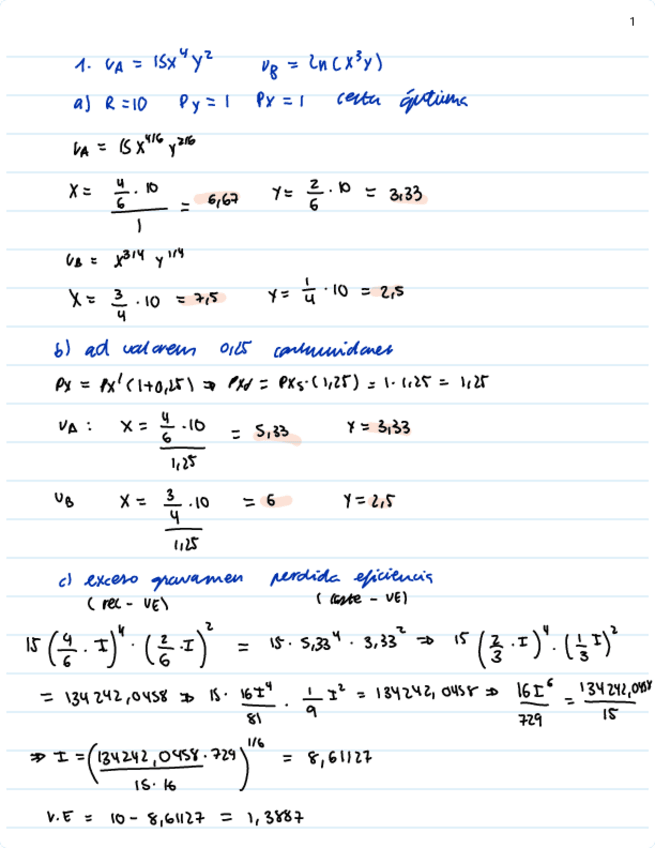 1
1. UA = 15x⁴y² UB = ln(x³y)
a) R=10 Py=1 Px=1 cesta óptima
UA = 15 x^4/6 y^2/6
X = (4/6 · 10)/1 = 6,67 Y = 2/6 · 10 = 3,33
UB = x^3/4 y^1/4
X = 3/4 · 10 = 7,5 Y = 1/4 · 10 = 2,5
b) ad valorem 0,25 consumidores
Px = Px'(1+0,25) ⇒ Pxd = Pxs·(1,25) = 1·1,25 = 1,25
UA : X = (4/6 · 10)/1,25 = 5,33 Y = 3,33
UB X = (3/4 · 10)/1,25 = 6 Y = 2,5
c) exceso gravamen perdida eficiencia
(rec - VE) (coste - VE)
15 (4/6 · I)⁴ · (2/6 · I)² = 15 · 5,33⁴ · 3,33² ⇒ 15 (2/3 · I)⁴ · (1/3 I)²
= 134242,0458 ⇒ 15 · 16I⁴/81 · 1/9 I² = 134242,0458 ⇒ 16I⁶/729 = 134242,0458/15
⇒ I = (134242,0458 · 729 / 15·16)^1/6 = 8,61127
V.E = 10 - 8,61127 = 1,3887